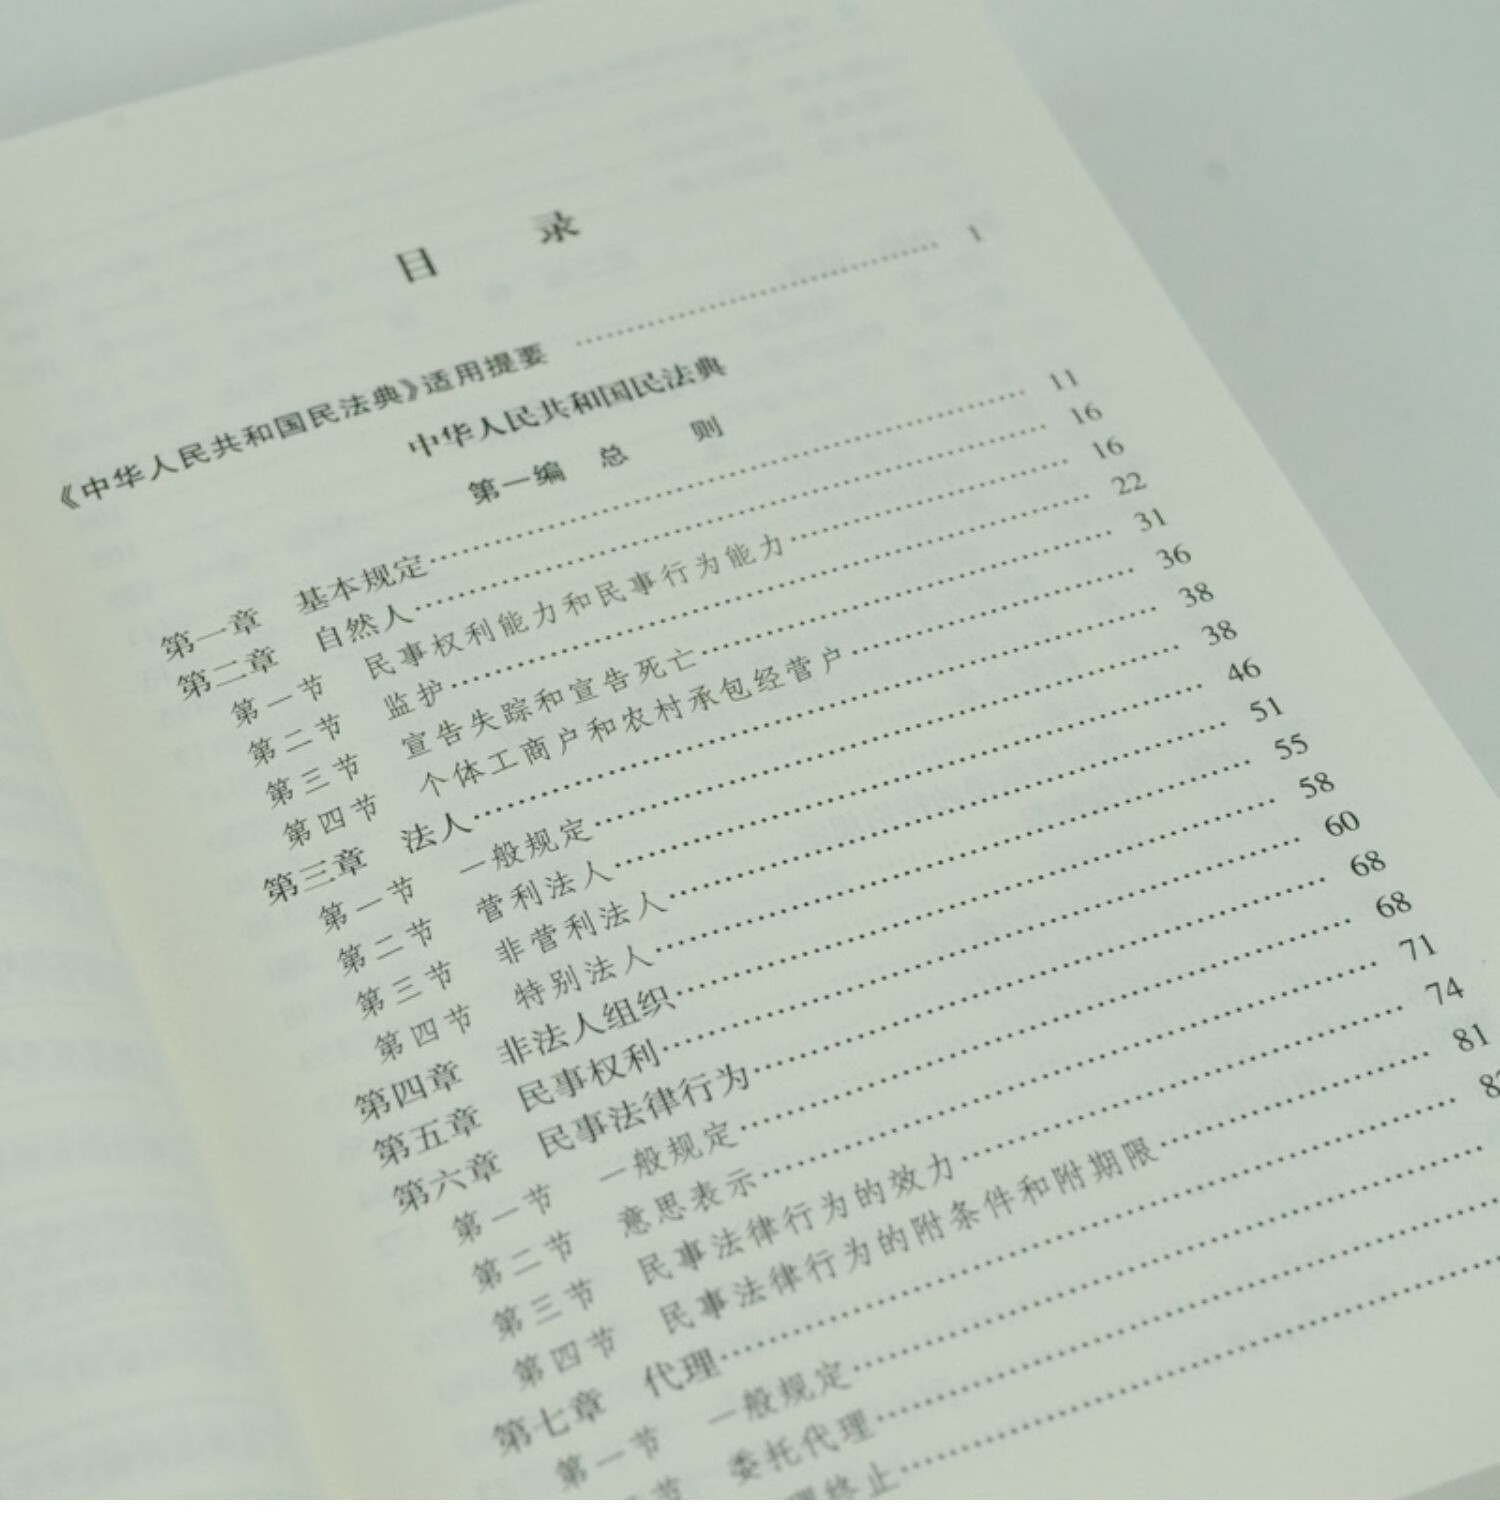 目 录
《中华人民共和国民法典》适用提要 …… 1
中华人民共和国民法典
第一编 总 则
第一章 基本规定 …… 11
第二章 自然人 …… 16
第一节 民事权利能力和民事行为能力 …… 16
第二节 监护 …… 22
第三节 宣告失踪和宣告死亡 …… 31
第四节 个体工商户和农村承包经营户 …… 36
第三章 法人 …… 38
第一节 一般规定 …… 38
第二节 营利法人 …… 46
第三节 非营利法人 …… 51
第四节 特别法人 …… 55
第四章 非法人组织 …… 58
第五章 民事权利 …… 60
第六章 民事法律行为 …… 68
第一节 一般规定 …… 68
第二节 意思表示 …… 71
第三节 民事法律行为的效力 …… 74
第四节 民事法律行为的附条件和附期限 …… 81
第七章 代理 ……
第一节 一般规定 ……
节 委托代理 ……
理终止 ……